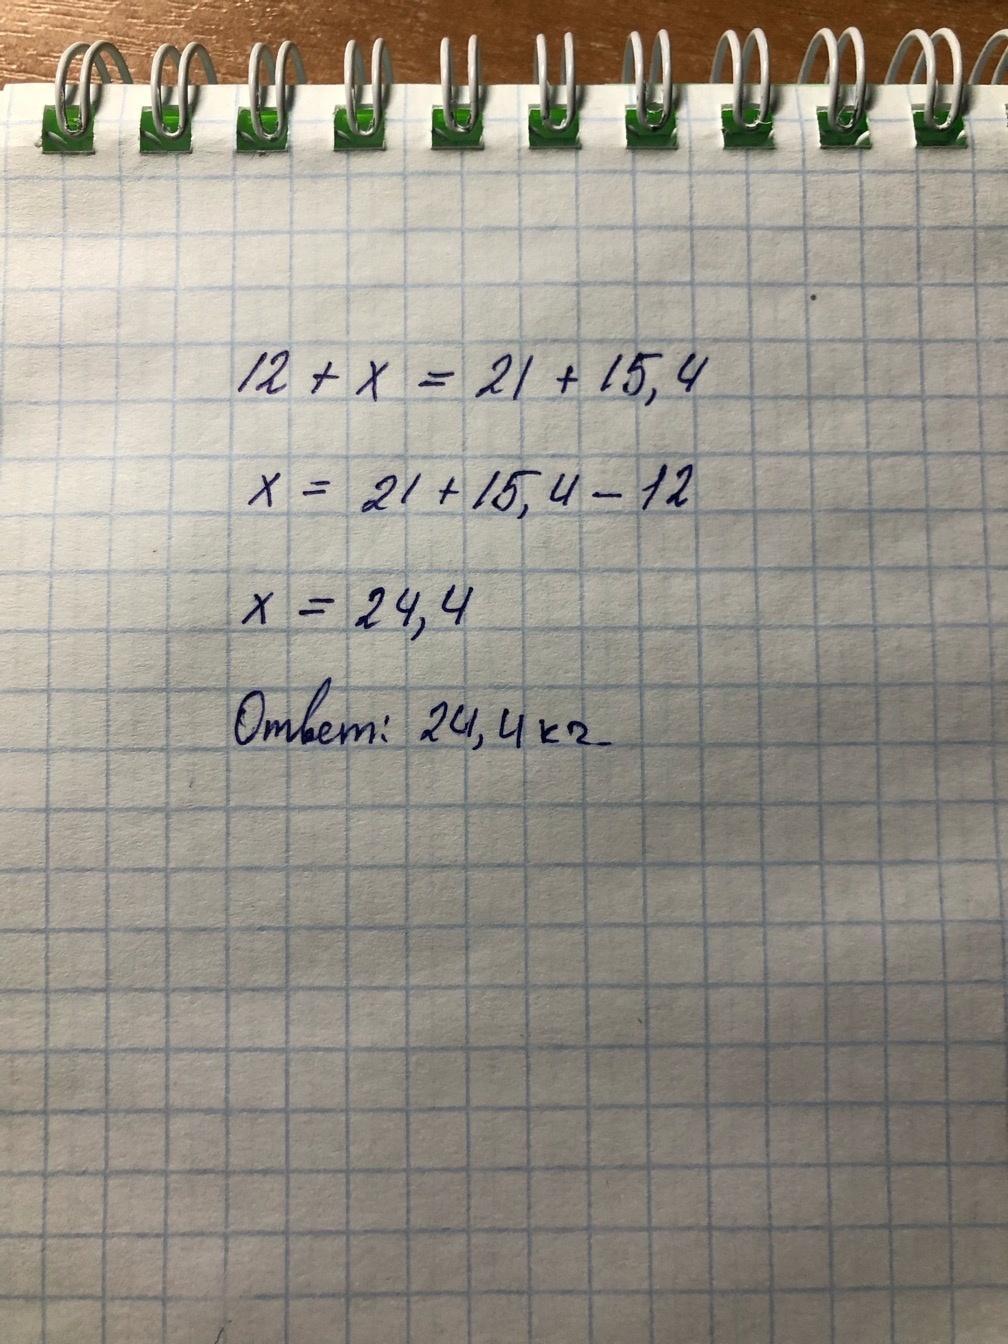 12 + x = 21 + 15,4
x = 21 + 15,4 - 12
x = 24,4
Ответ: 24,4 кг